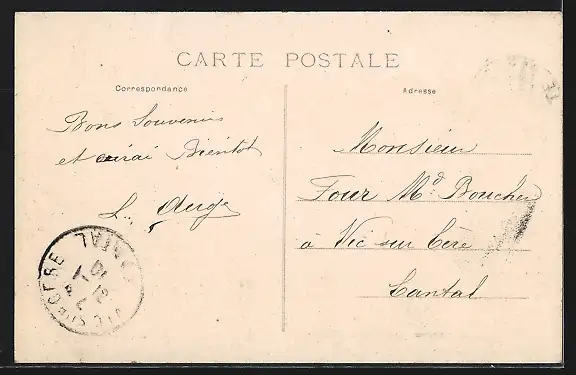 CARTE POSTALE
Correspondance
Bons Souvenirs
et Bientôt
L. Auge
Adresse
Monsieur
Four Md. Boucher
à Vic sur Cère
Cantal
VIC SUR CERE
CANTAL